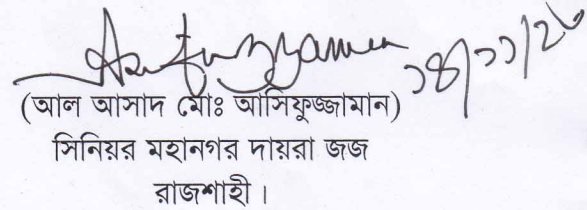 ১৪/১১/২৮
(আল আসাদ মোঃ আসিফুজ্জামান)
সিনিয়র মহানগর দায়রা জজ
রাজশাহী।